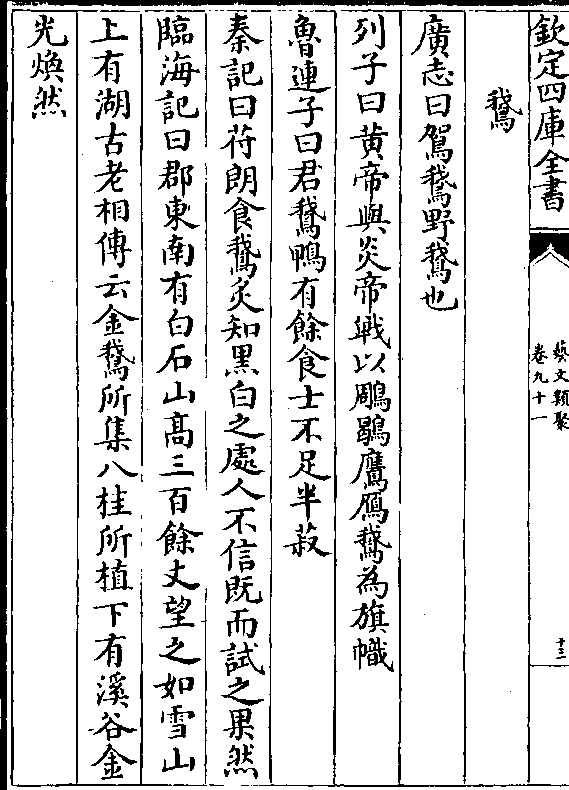 欽定四庫全書
藝文類聚
卷九十一
十三
鵞
廣志曰鴐鵞野鵞也
列子曰黄帝與炎帝戰以鵰鶡鷹鴈鵞為旗幟
魯連子曰君鵞鴨有餘食士不足半菽
秦記曰苻朗食鵞炙知黑白之處人不信既而試之果然
臨海記曰郡東南有白石山髙三百餘丈望之如雪山
上有湖古老相傳云金鵞所集八桂所植下有溪谷金
光煥然